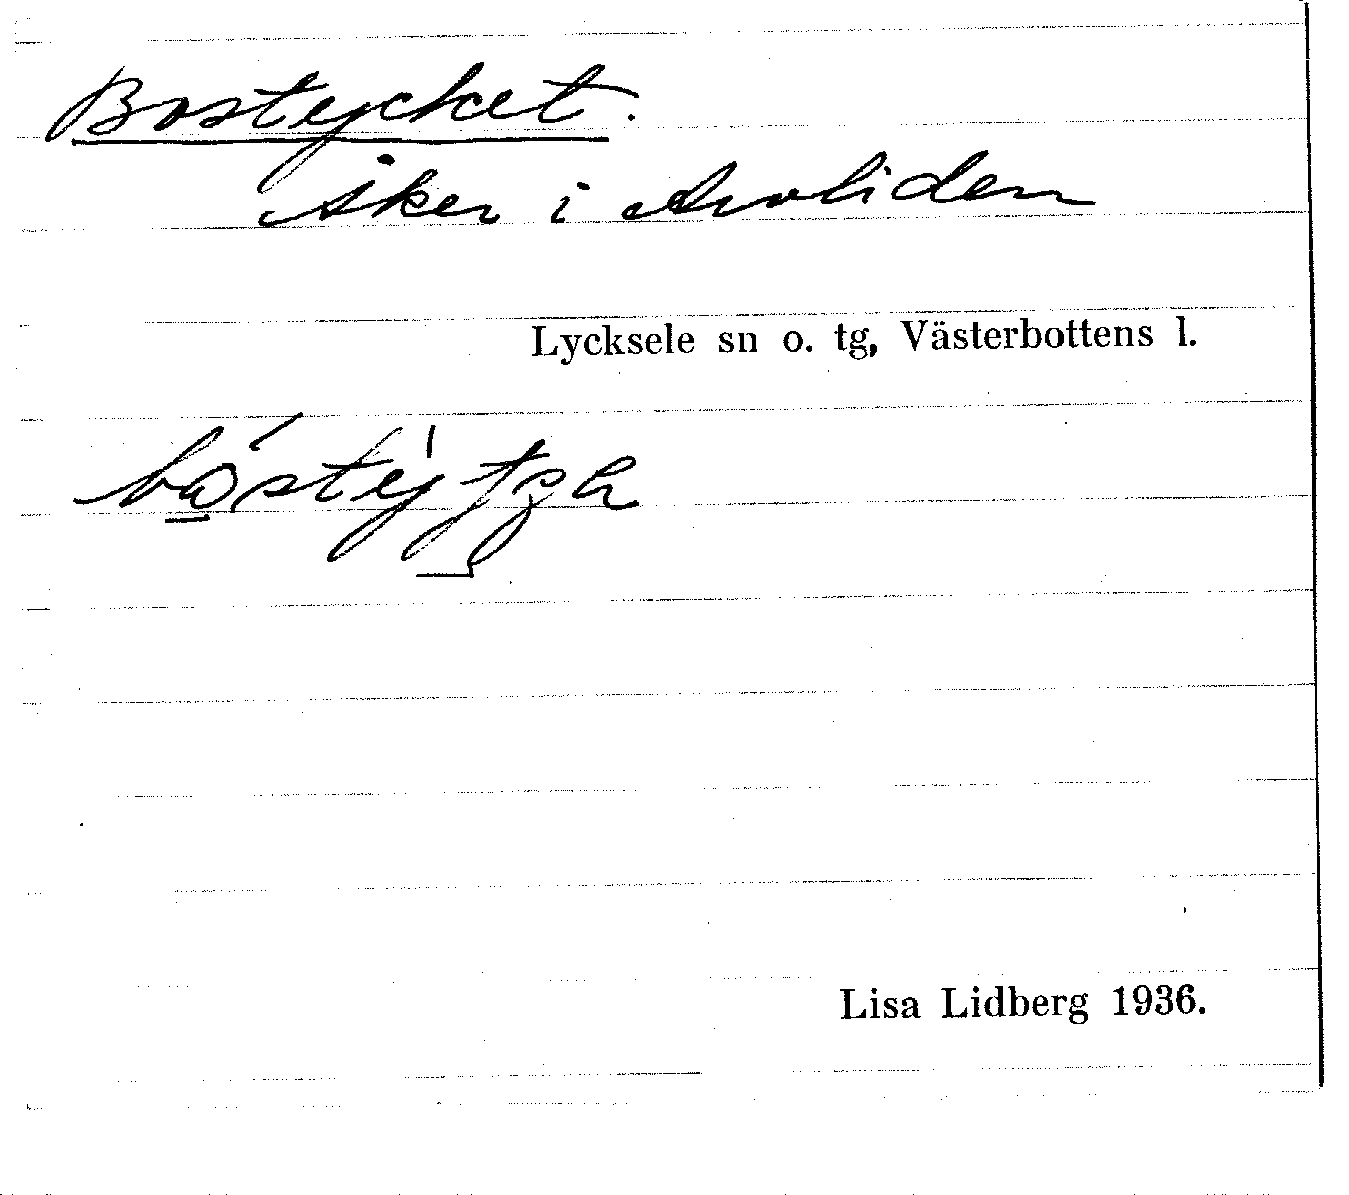 Bostycket.
Åker i Arvliden
Lycksele sn o. tg, Västerbottens l.
Lisa Lidberg 1936.